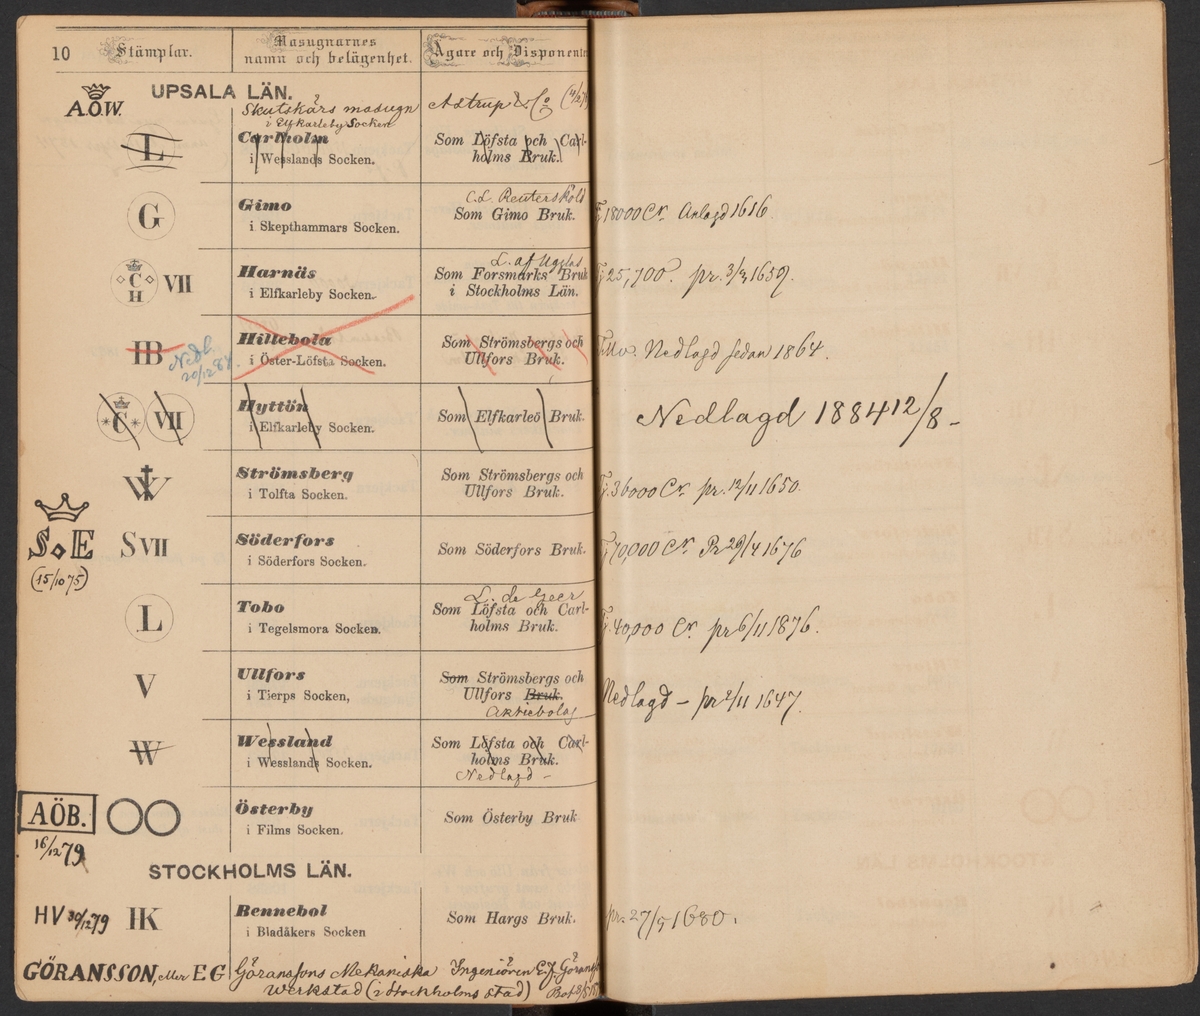 10 Stämplar. Masugnarnes namn och belägenhet. Ägare och Disponenter
UPSALA LÄN.
A.Ö.W. Skutskärs masugn Astrup & Co
i Elfkarleby Socken
L Carlholm Som Löfsta och Carl-
i Wesslands Socken. holms Bruk.
C.L. Reutersköld
G Gimo Som Gimo Bruk. 18000 Cr. Anlagd 1616
i Skepthammars Socken.
L. af Ugglas
C H VII Harnäs Som Forsmarks Bruk 25,700. pr. 3/3 1659.
i Elfkarleby Socken. i Stockholms Län.
IB Hillebola Som Strömsbergs och Nedlagd sedan 1864.
Nedl. 20/12 84. i Öster-Löfsta Socken. Ullfors Bruk.
C VII Hyttön Som Elfkarleö Bruk. Nedlagd 1884 12/8 -
i Elfkarleby Socken.
W Strömsberg Som Strömsbergs och 36000 Cr. pr. 12/11 1650.
i Tolfta Socken. Ullfors Bruk.
S E S VII Söderfors Som Söderfors Bruk. 70,000 Cr. Pr 29/4 1676
(15/10 75) i Söderfors Socken.
L. De Geer
L Tobo Som Löfsta och Carl- 40,000 Cr. pr 6/11 1876.
i Tegelsmora Socken. holms Bruk.
V Ullfors Som Strömsbergs och Nedlagd - pr 2/11 1647.
i Tierps Socken, Ullfors Bruk.
Aktiebolag
W Wessland Som Löfsta och Carl-
i Wesslands Socken. holms Bruk.
Nedlagd -
AÖB. OO Österby Som Österby Bruk
16/12 79 i Films Socken.
STOCKHOLMS LÄN.
HV 30/12 79 IK Rennebol Som Hargs Bruk. pr. 27/5 1680.
i Bladåkers Socken
GÖRANSSON, eller EG Göranssons Mekaniska Ingeniören E.J. Görans
Werkstad (i Stockholms stad)